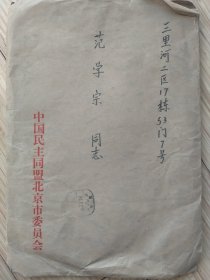 三里河二区17栋53门7号
范学宗 同志
中国民主同盟北京市委员会